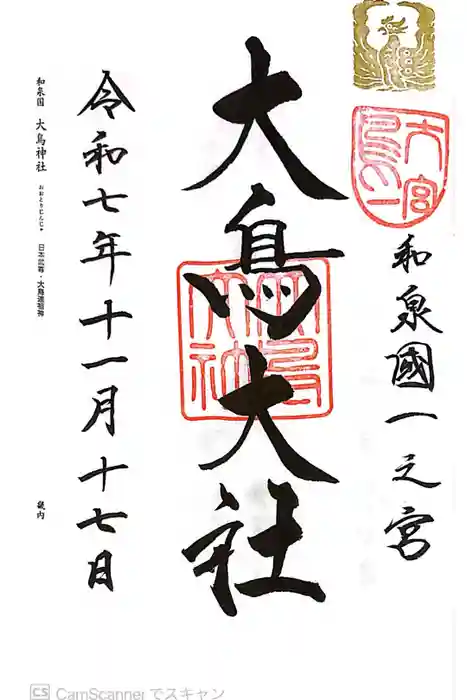 和泉國一之宮
大鳥大社
令和七年十一月十七日
和泉国 大鳥神社 おおとりじんじゃ 日本武尊・大鳥連祖神
畿内
大鳥一宮
CS CamScanner でスキャン